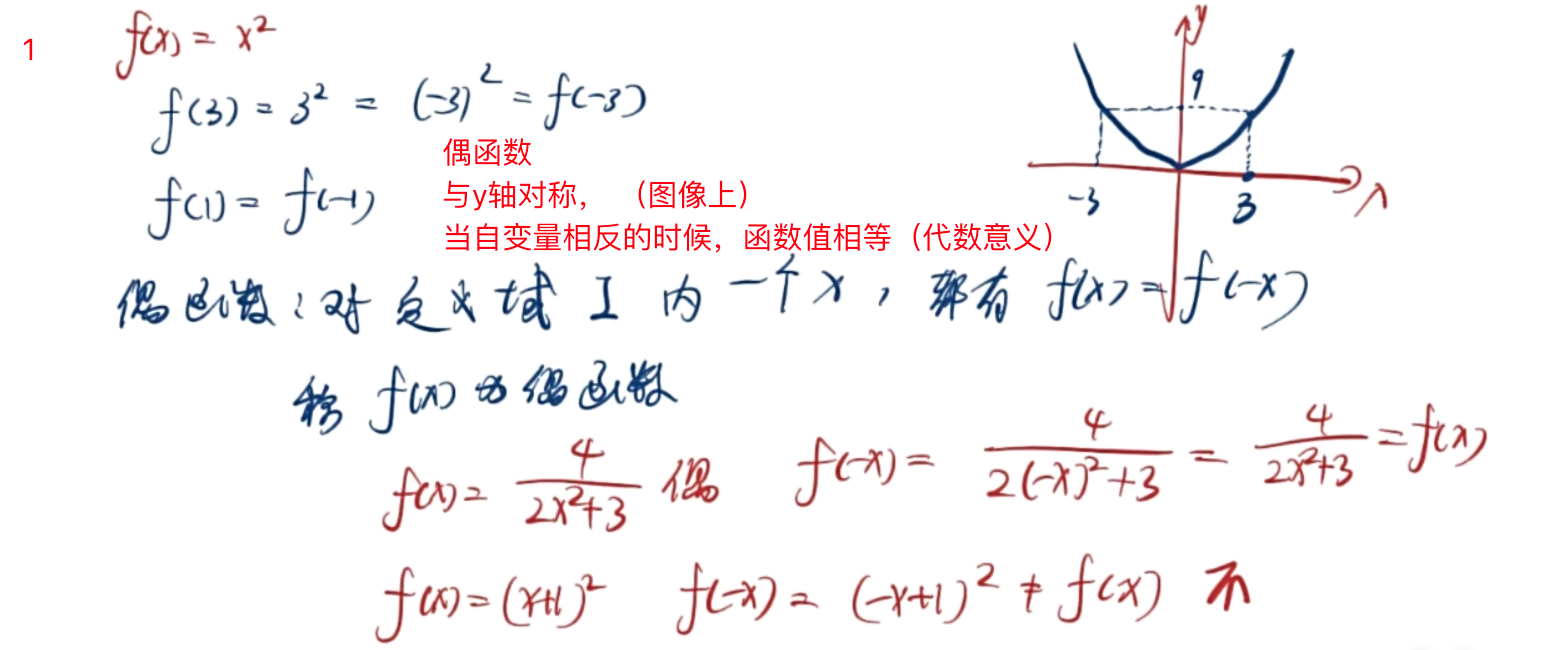 1
f(x) = x²
f(3) = 3² = (-3)² = f(-3)
f(1) = f(-1)
偶函数
与y轴对称，（图像上）
当自变量相反的时候，函数值相等（代数意义）
y
9
-3
3
x
偶函数：对定义域 I 内一个 x，都有 f(x) = f(-x)
称 f(x) 为偶函数
f(x) = 4/(2x²+3) 偶 f(-x) = 4/(2(-x)²+3) = 4/(2x²+3) = f(x)
f(x) = (x+1)² f(-x) = (-x+1)² ≠ f(x) 不